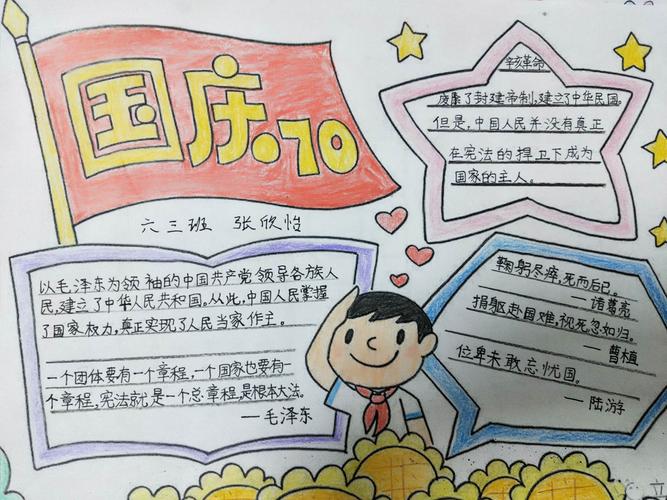 国庆.70
六三班 张欣怡
辛亥革命
废除了封建帝制,建立了中华民国。
但是,中国人民并没有真正
在宪法的捍卫下成为
国家的主人。
以毛泽东为领袖的中国共产党领导各族人
民,建立了中华人民共和国。从此,中国人民掌握
了国家权力,真正实现了人民当家作主。
一个团体要有一个章程,一个国家也要有一
个章程,宪法就是一个总章程,是根本大法。
—毛泽东
鞠躬尽瘁,死而后已。
—诸葛亮
捐躯赴国难,视死忽如归。
—曹植
位卑未敢忘忧国。
—陆游